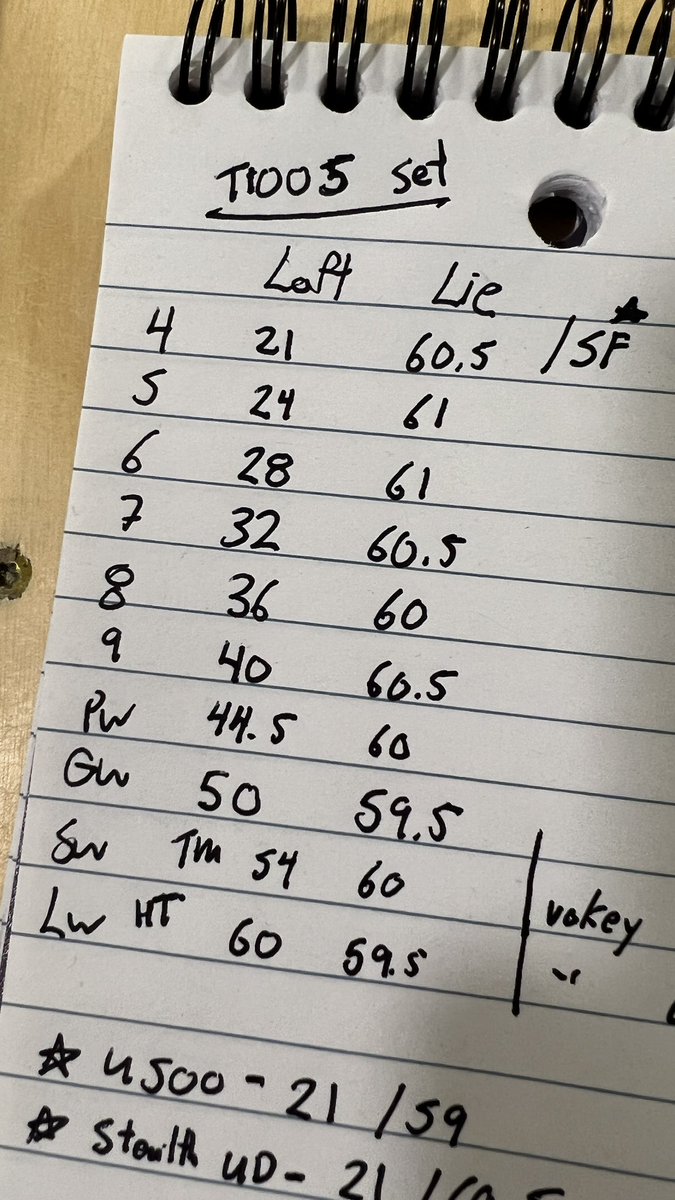 T100S set
Loft Lie
4 21 60.5 /SF ★
5 24 61
6 28 61
7 32 60.5
8 36 60
9 40 60.5
PW 44.5 60
GW 50 59.5
SW TM 54 60 vokey
LW HT 60 59.5 "
☆ U500 - 21 /59
☆ Stealth UD - 21 /